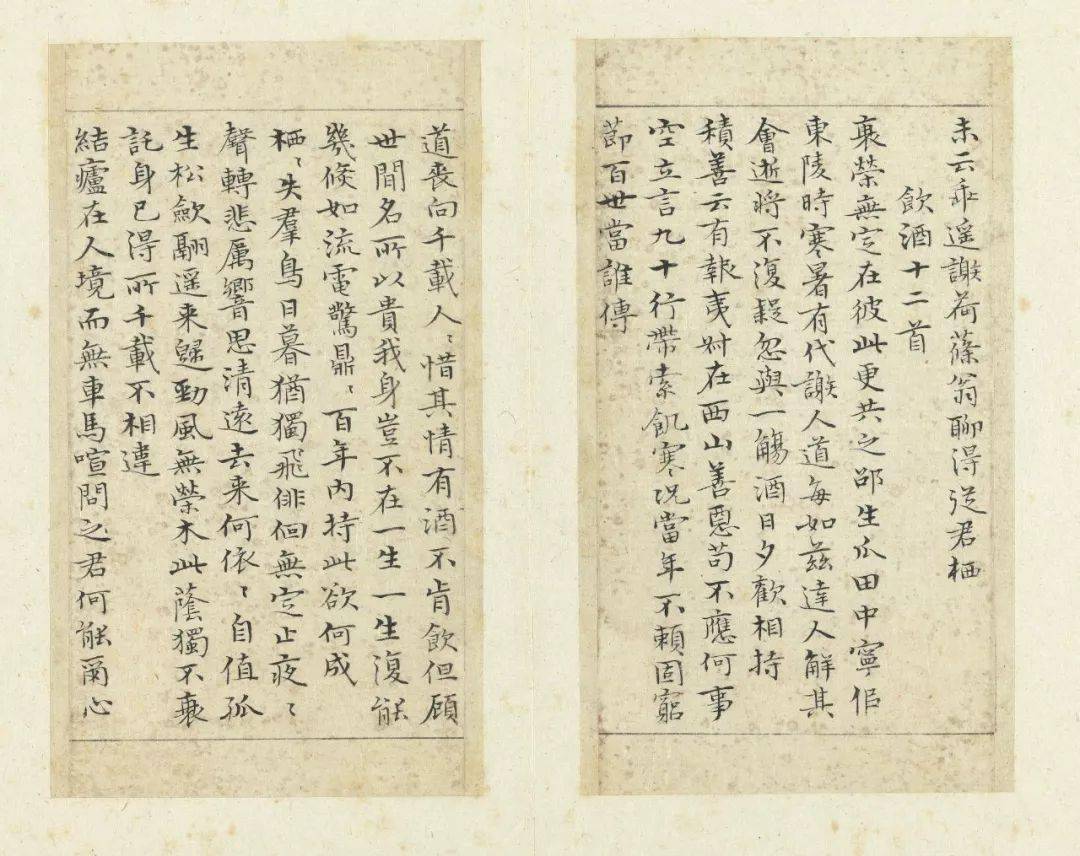 未云乖遥謝荷蓧翁聊得從君栖
飲酒十二首
衰榮無定在彼此更共之邵生瓜田中寧似
東陵時寒暑有代謝人道每如茲達人解其
會逝將不復疑忽與一觴酒日夕歡相持
積善云有報夷叔在西山善惡苟不應何事
空立言九十行帶索飢寒況當年不賴固窮
節百世當誰傳
道喪向千載人〻惜其情有酒不肯飲但顧
世間名所以貴我身豈不在一生一生復能
幾倐如流電驚鼎〻百年內持此欲何成
栖〻失羣鳥日暮猶獨飛徘徊無定止夜〻
聲轉悲厲響思清遠去来何依〻自值孤
生松歛翮遥来歸勁風無榮木此蔭獨不衰
託身已得所千載不相違
結廬在人境而無車馬喧問之君何能爾心